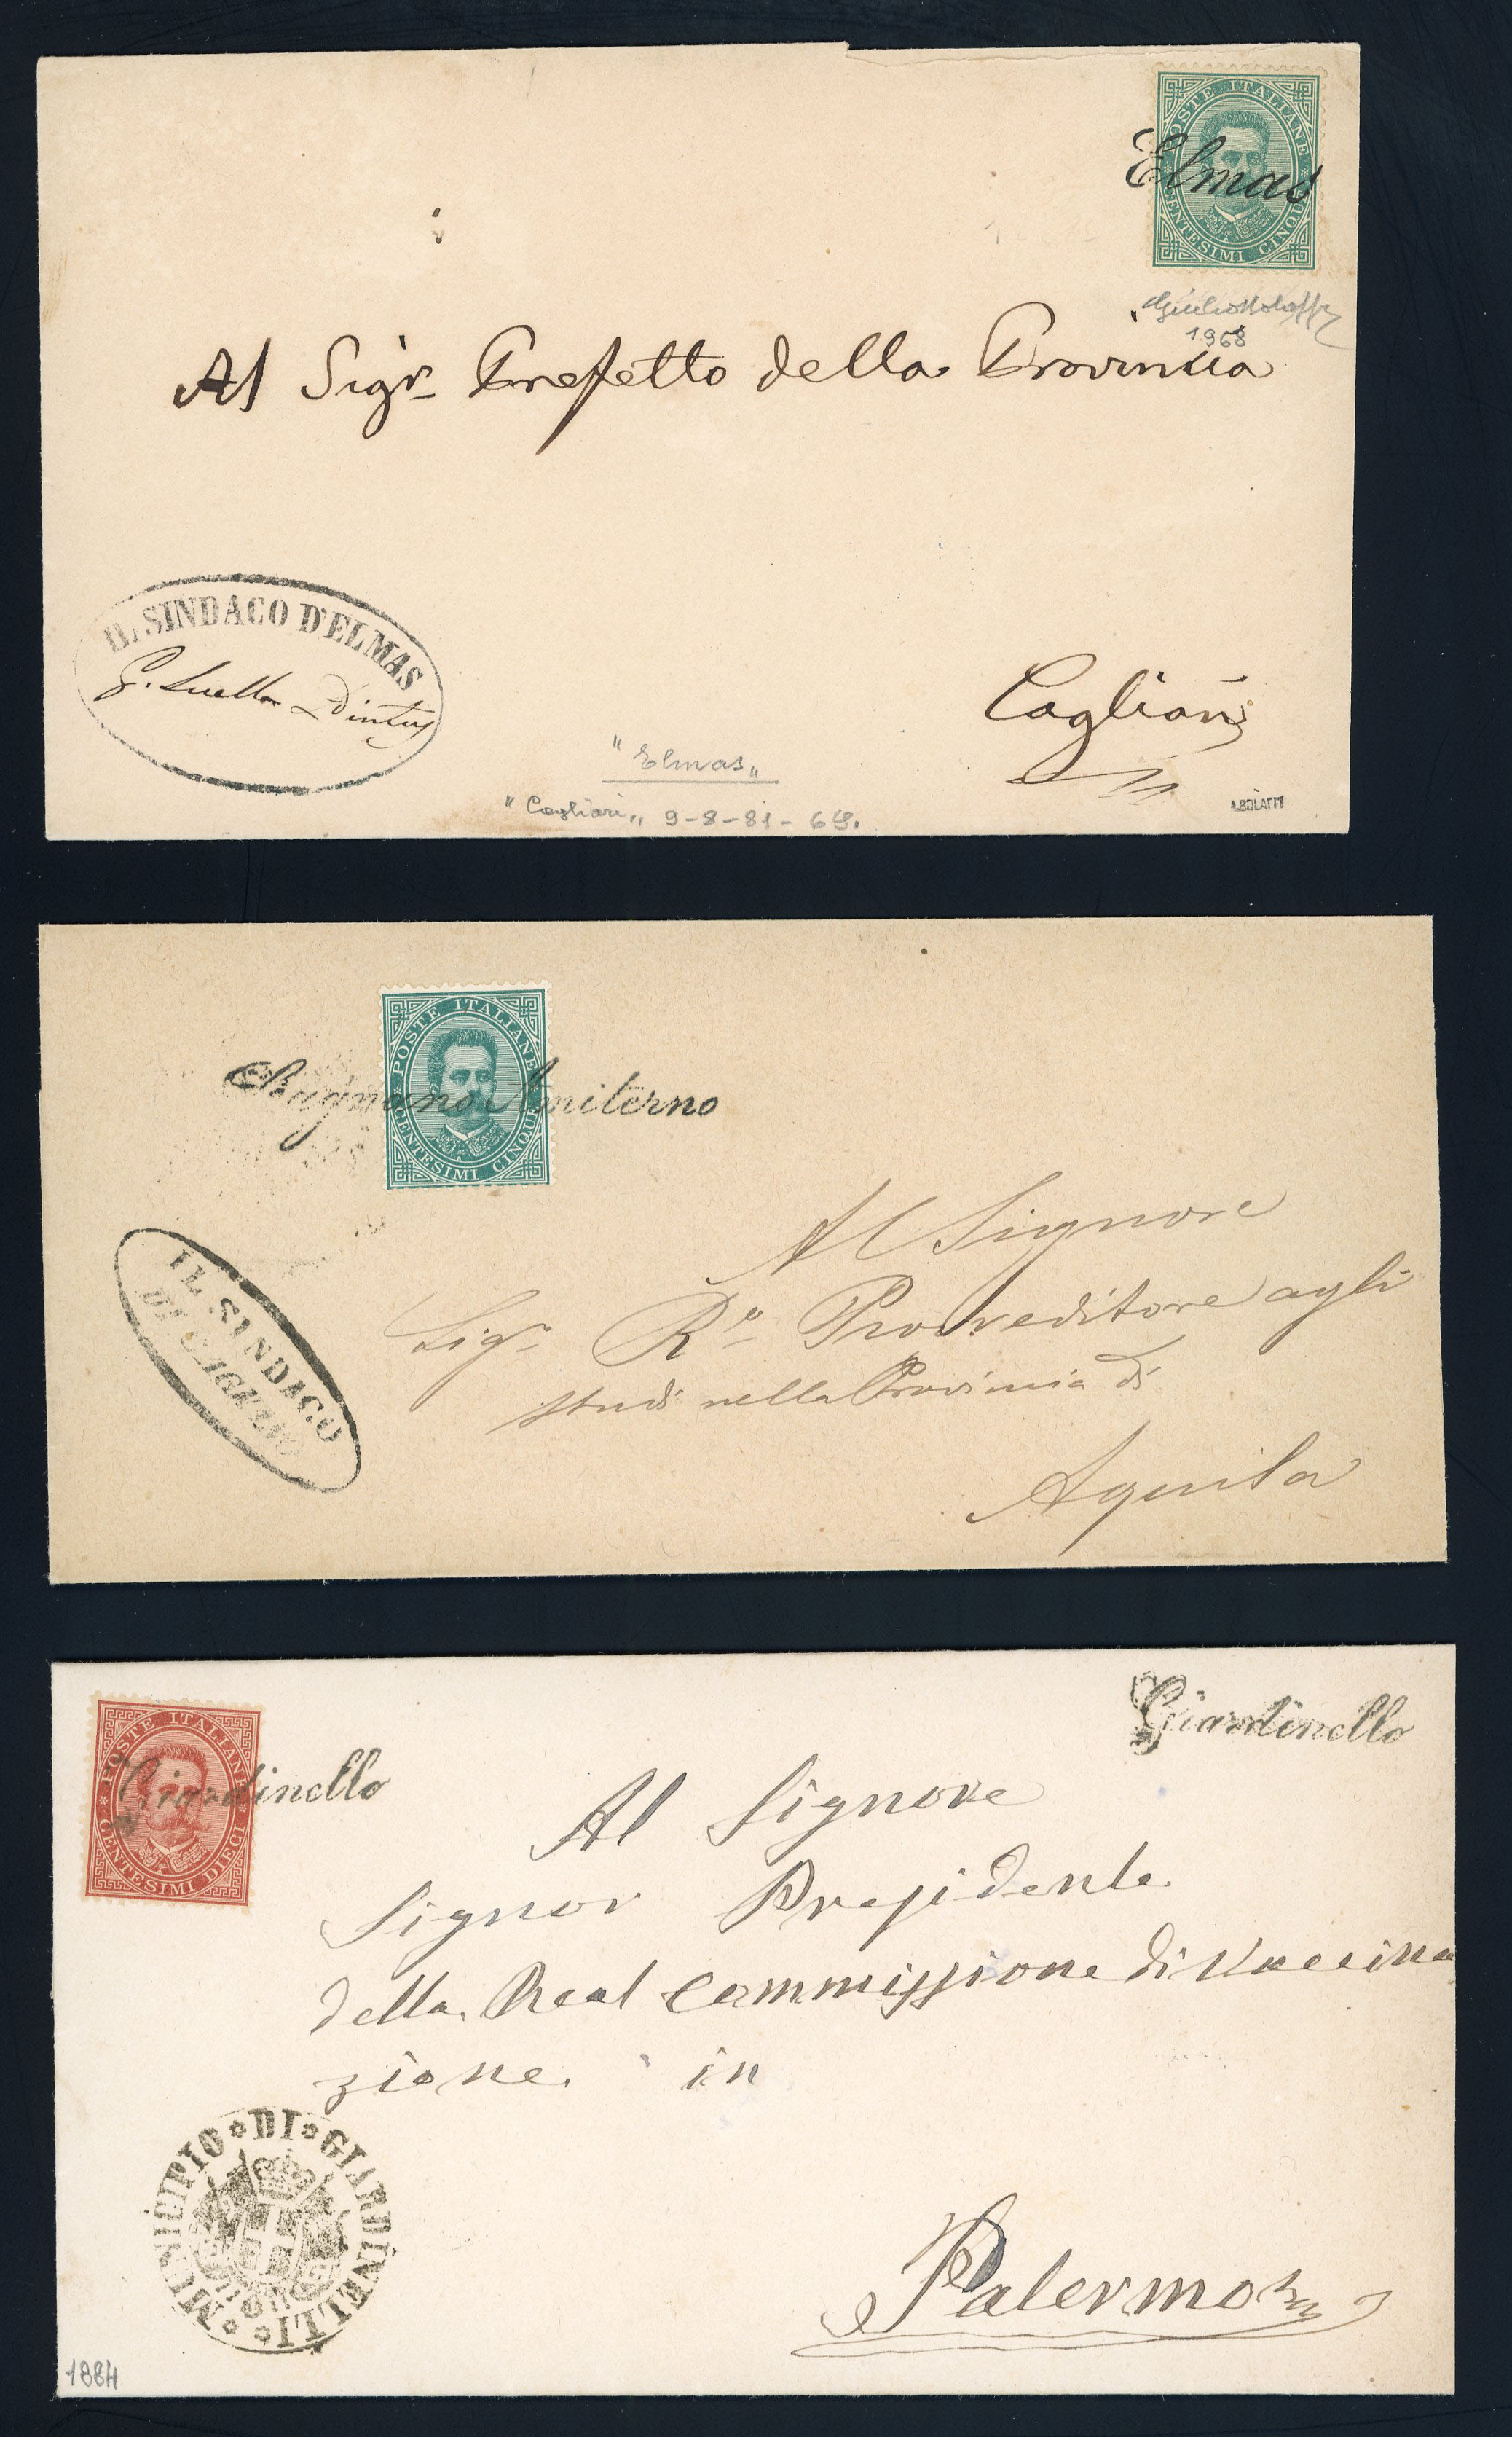 POSTE ITALIANE
CENTESIMI CINQUE
Elmas
1968
Al Sigr Prefetto della Provincia
IL SINDACO D'ELMAS
Cagliari
"Elmas„
"Cagliari„ 9-8-81-
A.BOLAFFI
POSTE ITALIANE
CENTESIMI CINQUE
Cagnano Amiterno
Al Signore
Sigr Ro Provveditore agli
studi nella Provincia di
Aquila
IL SINDACO
DI CAGNANO
POSTE ITALIANE
CENTESIMI DIECI
Giardinello
Giardinello
Al Signore
Signor Presidente
della Real Commissione di Vaccina
zione in
Palermo
MUNICIPIO * DI * GIARDINELLI *
1884